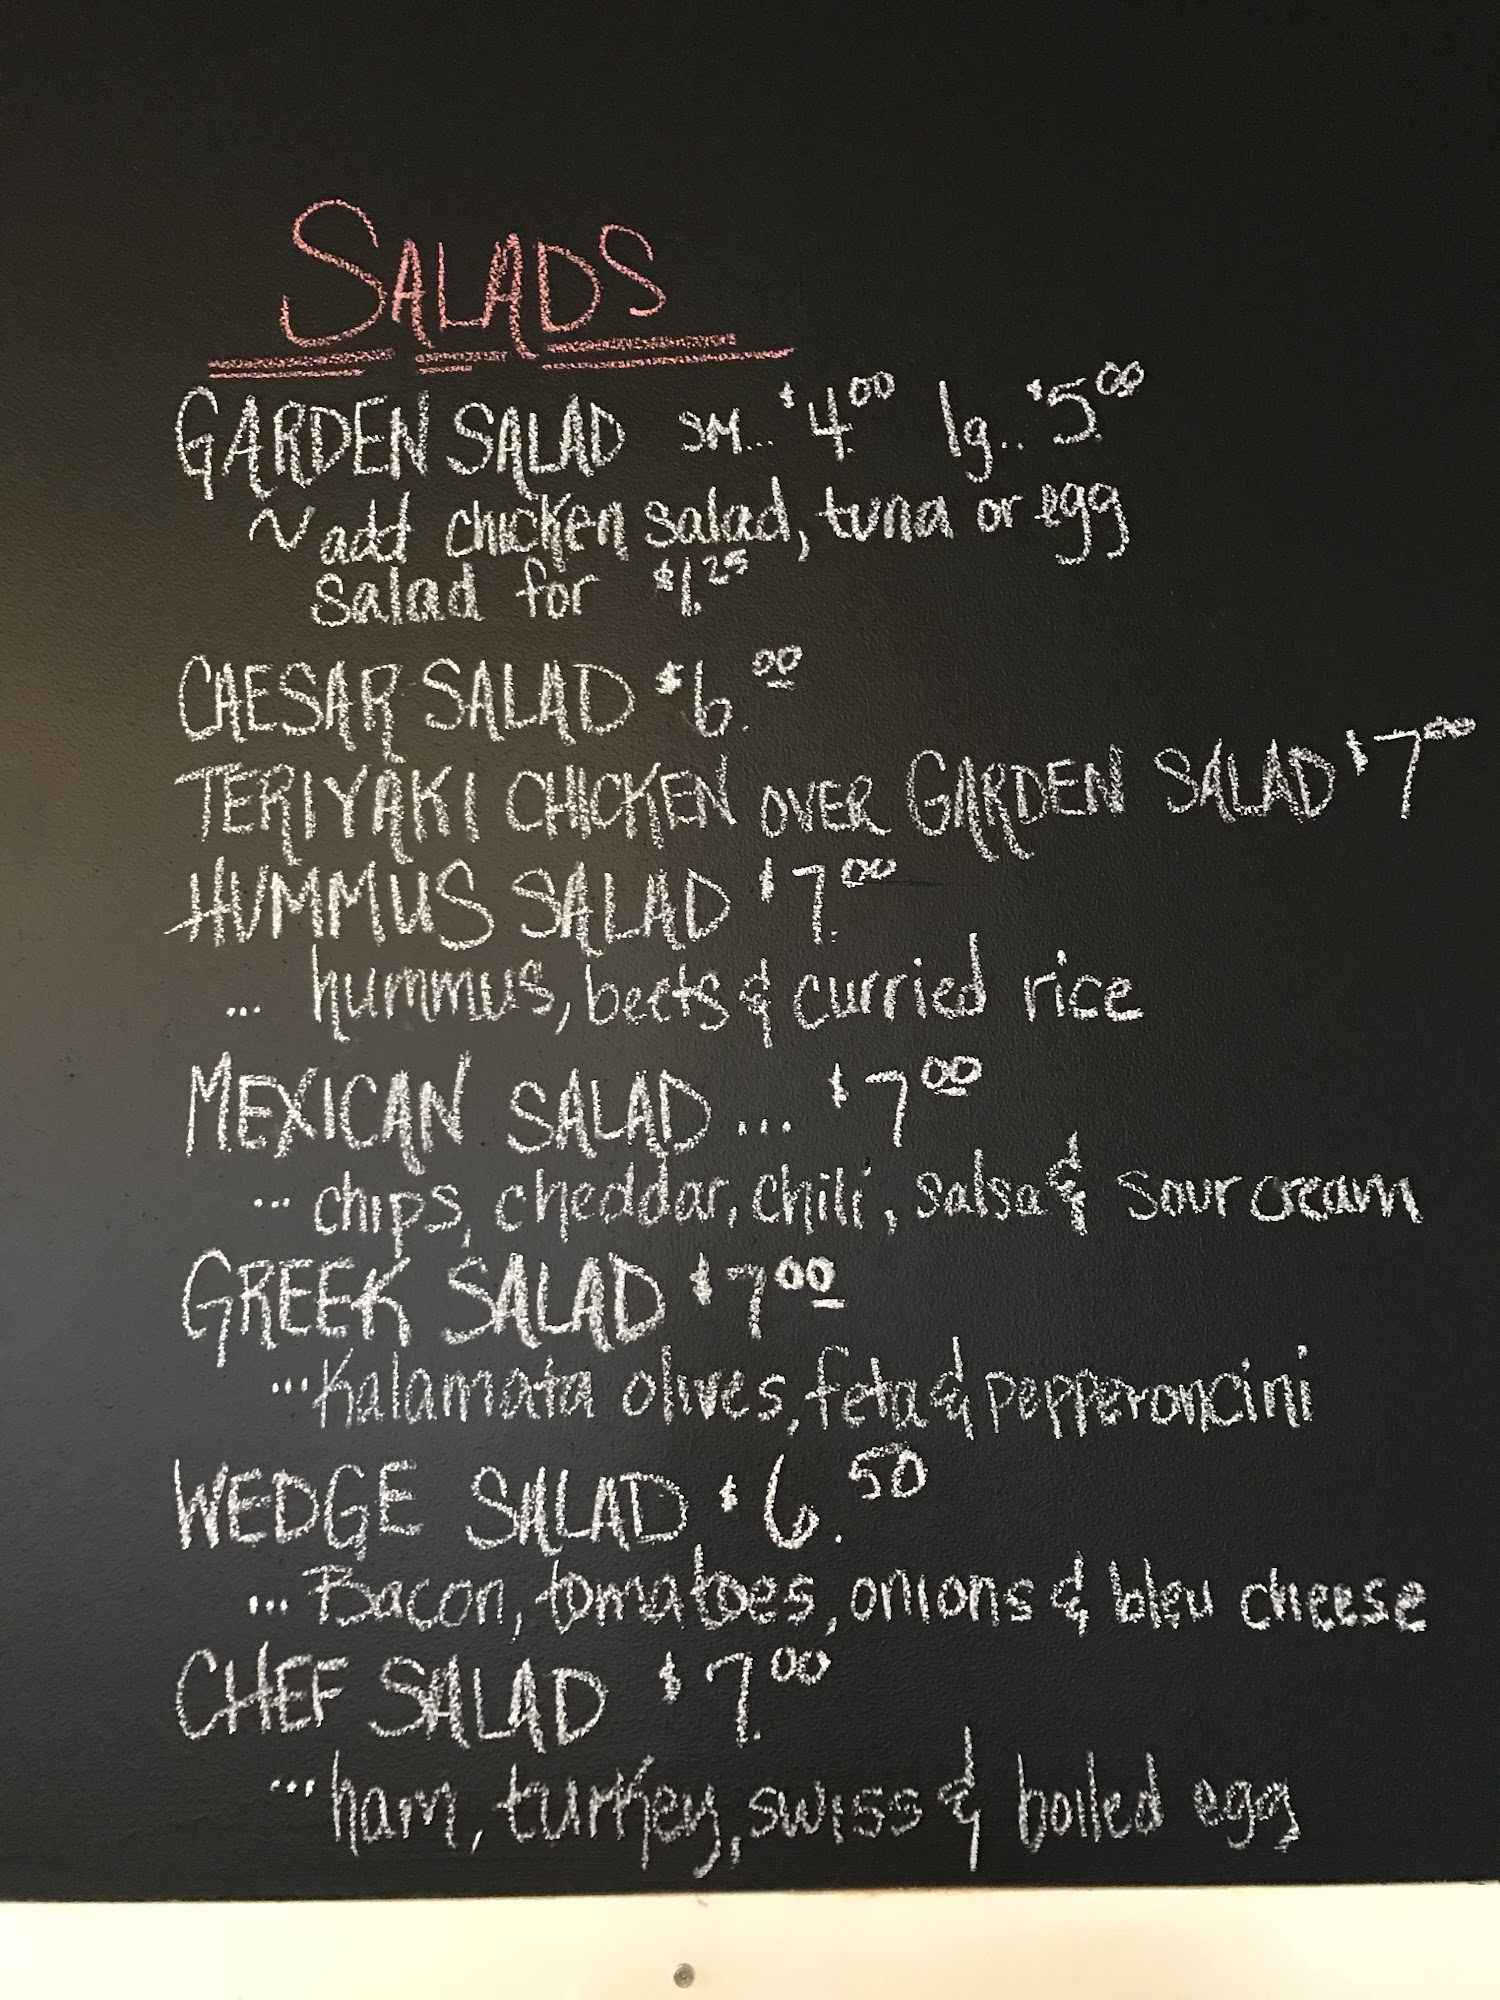 SALADS
GARDEN SALAD SM... $4.00 lg.. $5.00
~ add chicken salad, tuna or egg
salad for $1.25
CAESAR SALAD $6.00
TERIYAKI CHICKEN OVER GARDEN SALAD $7.00
HUMMUS SALAD $7.00
... hummus, beets & curried rice
MEXICAN SALAD ... $7.00
... chips, cheddar, chili, salsa & sour cream
GREEK SALAD $7.00
...Kalamata olives, feta & pepperoncini
WEDGE SALAD $6.50
... Bacon, tomatoes, onions & bleu cheese
CHEF SALAD $7.00
...ham, turkey, swiss & boiled egg